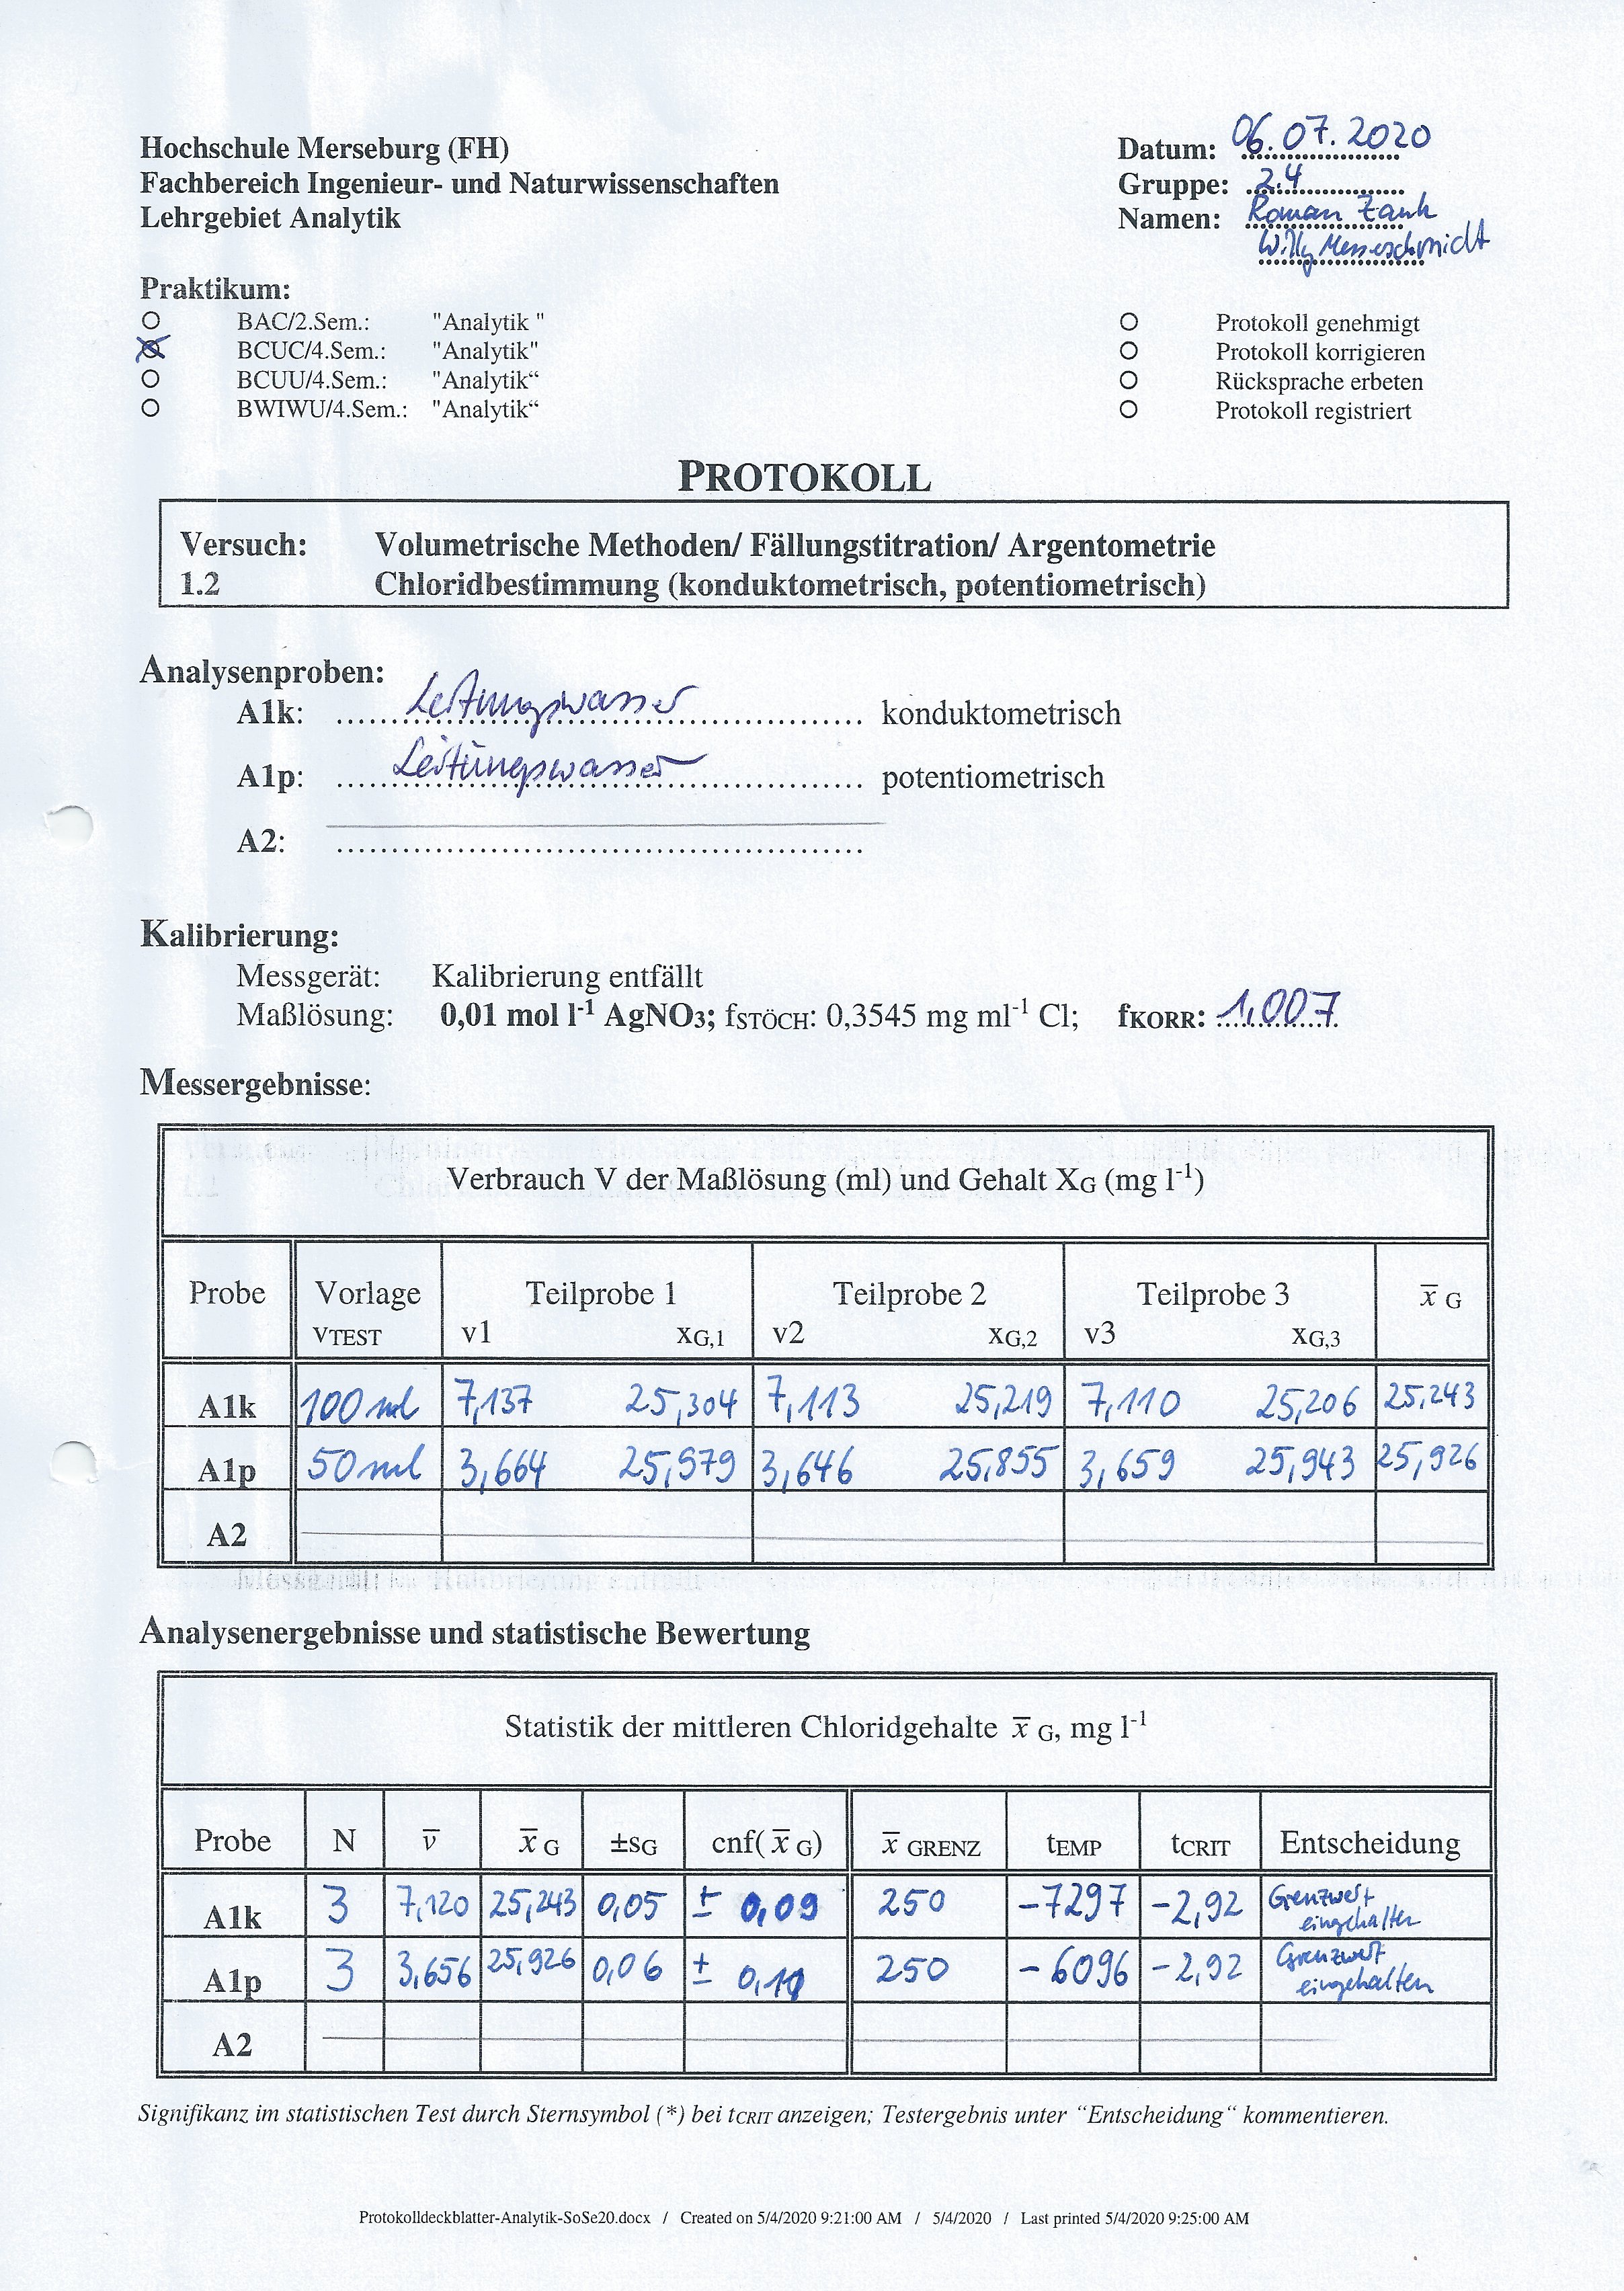 Hochschule Merseburg (FH)
Fachbereich Ingenieur- und Naturwissenschaften
Lehrgebiet Analytik
Datum: 06.07.2020
Gruppe: 2.4
Namen: Roman Zank
Willy Messerschmidt
Praktikum:
BAC/2.Sem.: "Analytik "
BCUC/4.Sem.: "Analytik"
BCUU/4.Sem.: "Analytik“
BWIWU/4.Sem.: "Analytik“
Protokoll genehmigt
Protokoll korrigieren
Rücksprache erbeten
Protokoll registriert
PROTOKOLL
Versuch: Volumetrische Methoden/ Fällungstitration/ Argentometrie
1.2 Chloridbestimmung (konduktometrisch, potentiometrisch)
Analysenproben:
A1k: Leitungswasser konduktometrisch
A1p: Leitungswasser potentiometrisch
A2:
Kalibrierung:
Messgerät: Kalibrierung entfällt
Maßlösung: 0,01 mol l-1 AgNO3; fSTÖCH: 0,3545 mg ml-1 Cl; fKORR: 1,007
Messergebnisse:
Verbrauch V der Maßlösung (ml) und Gehalt XG (mg l-1)
Probe Vorlage Teilprobe 1 Teilprobe 2 Teilprobe 3 x̅ G
vTEST v1 xG,1 v2 xG,2 v3 xG,3
A1k 100 ml 7,137 25,304 7,113 25,219 7,110 25,206 25,243
A1p 50 ml 3,664 25,979 3,646 25,855 3,659 25,943 25,926
A2
Analysenergebnisse und statistische Bewertung
Statistik der mittleren Chloridgehalte x̅ G, mg l-1
Probe N v̅ x̅ G ±sG cnf( x̅ G) x̅ GRENZ tEMP tCRIT Entscheidung
A1k 3 7,120 25,243 0,05 ± 0,09 250 -7297 -2,92 Grenzwert eingehalten
A1p 3 3,656 25,926 0,06 ± 0,10 250 -6096 -2,92 Grenzwert eingehalten
A2
Signifikanz im statistischen Test durch Sternsymbol (*) bei tCRIT anzeigen; Testergebnis unter “Entscheidung“ kommentieren.
Protokolldeckblatter-Analytik-SoSe20.docx / Created on 5/4/2020 9:21:00 AM / 5/4/2020 / Last printed 5/4/2020 9:25:00 AM